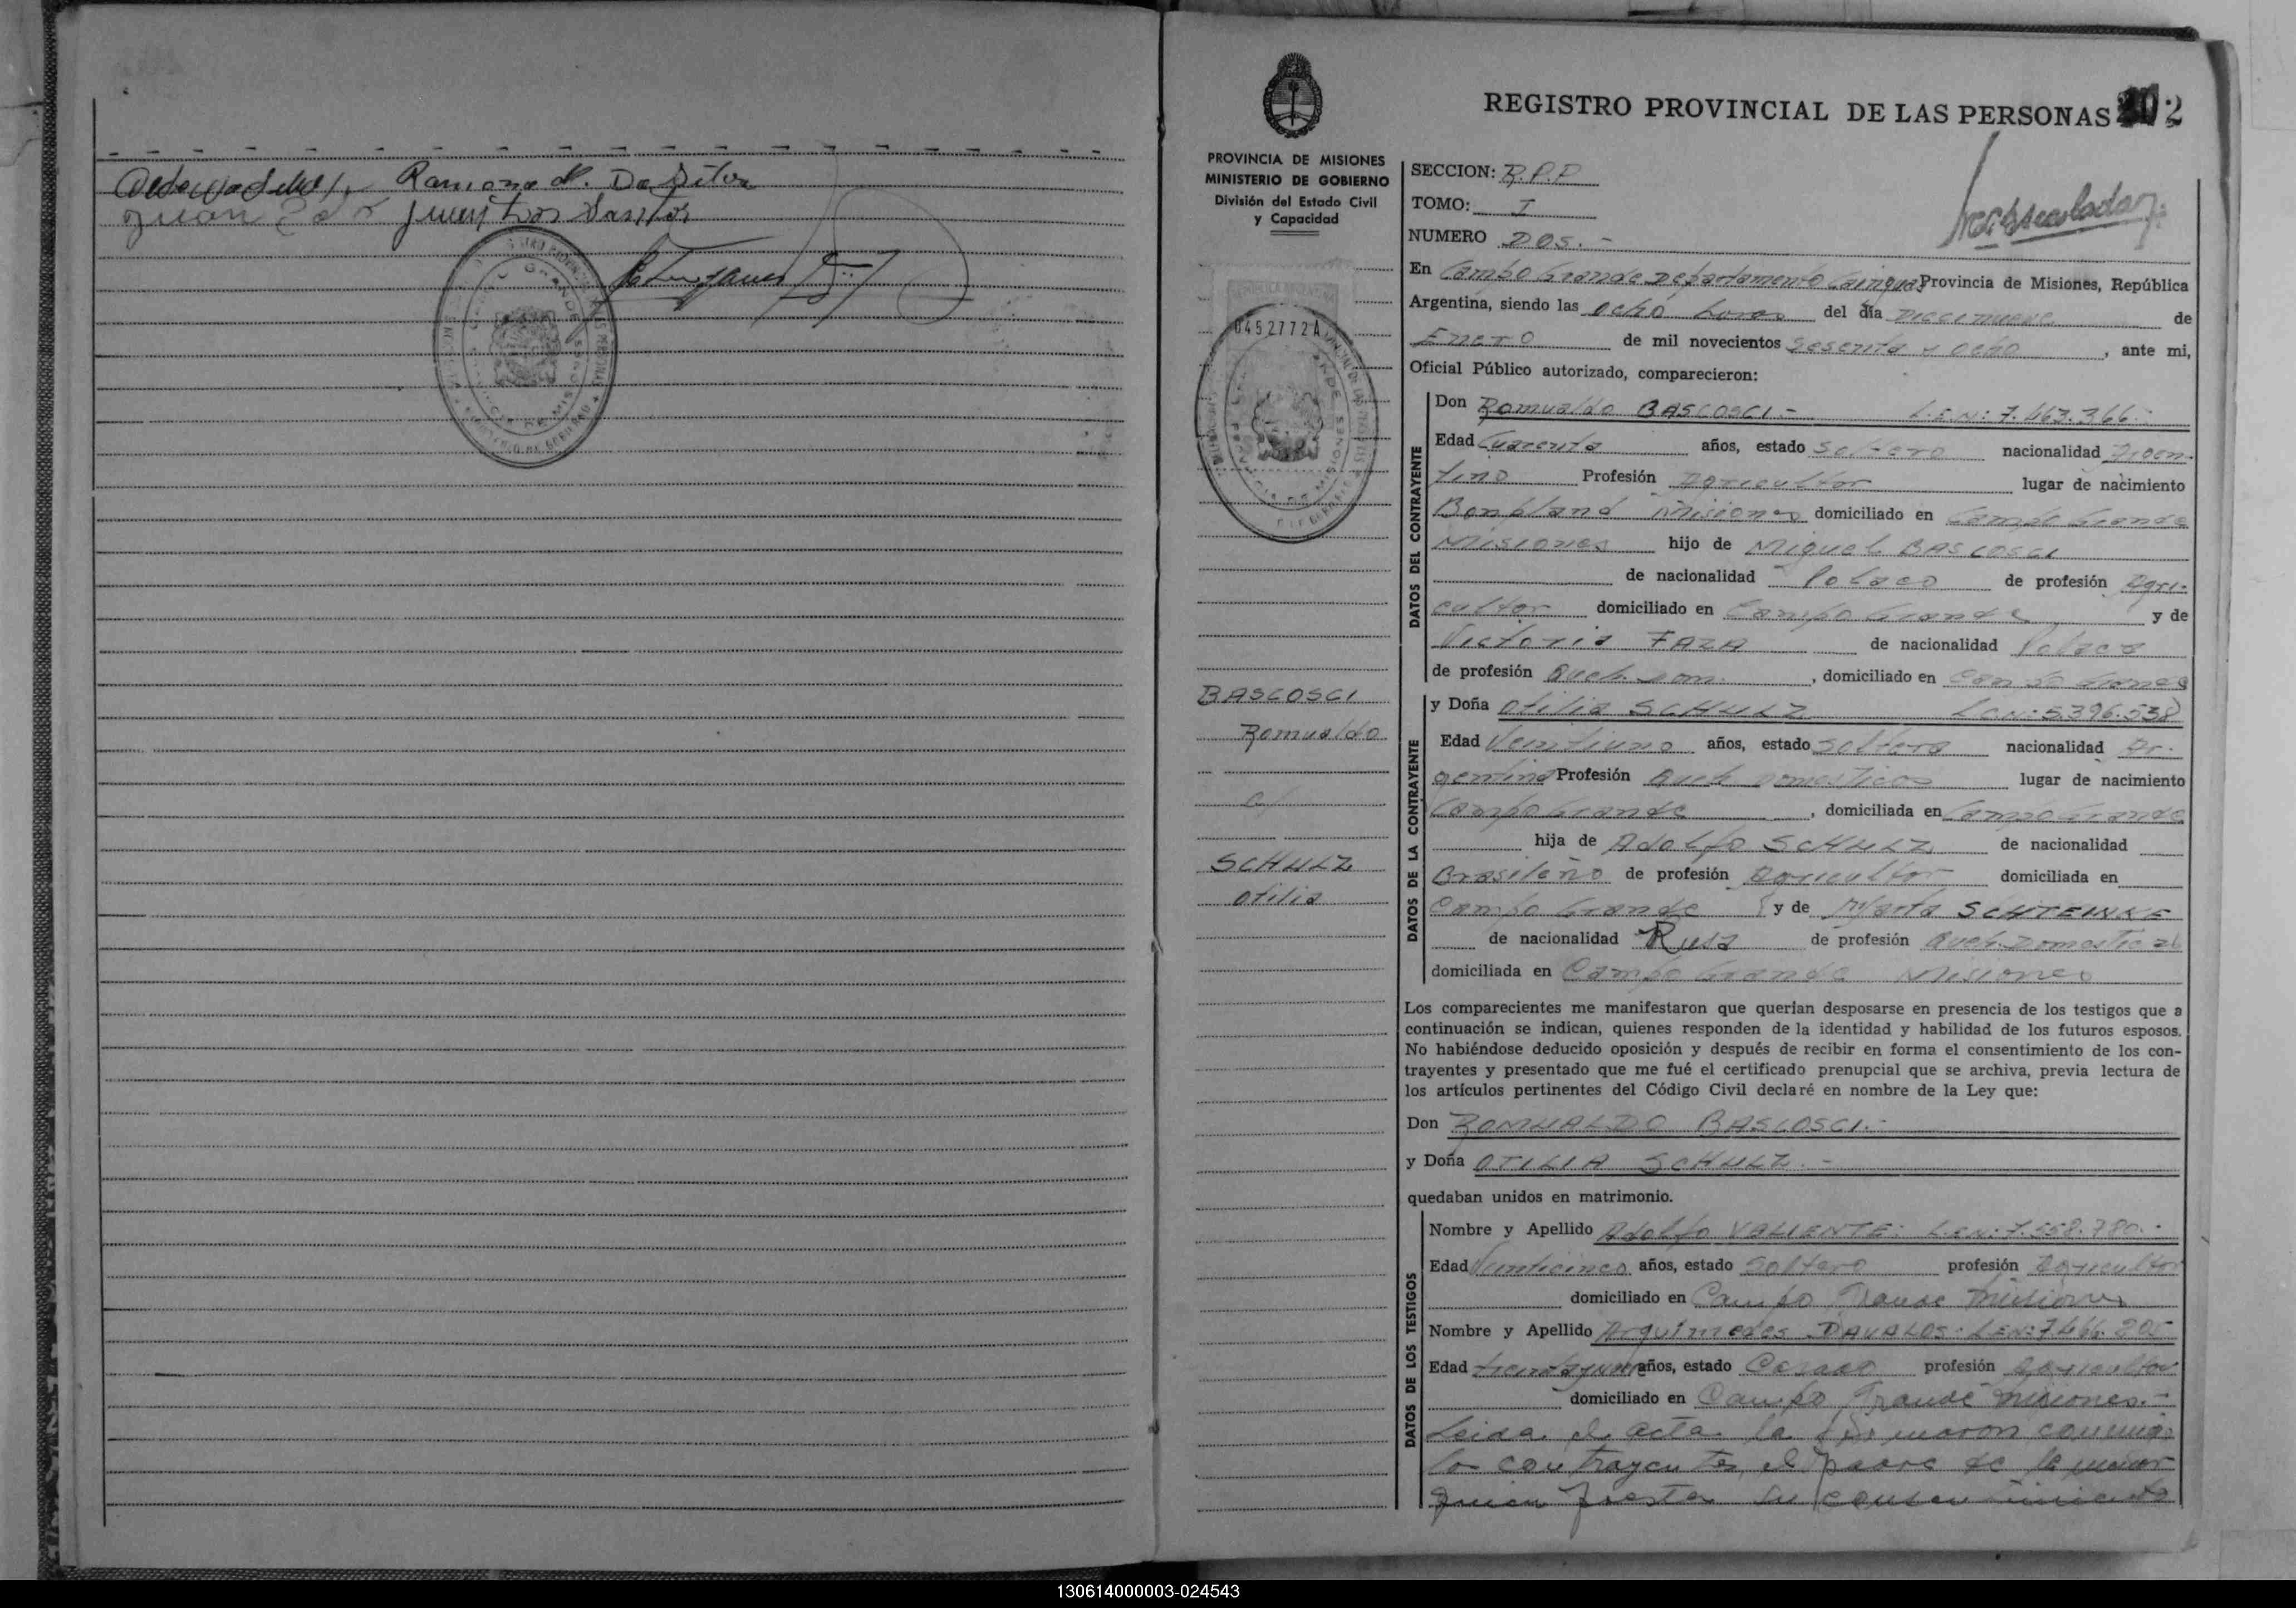 Ramona A. Da Silva
Juan
REGISTRO PROVINCIAL DE LAS PERSONAS 2
PROVINCIA DE MISIONES
MINISTERIO DE GOBIERNO
División del Estado Civil
y Capacidad
0452772A
BASCOSCI
Romualdo
c/
SCHULZ
Otilia
SECCION: R.P.P
TOMO: I
NUMERO DOS. -
En Campo Grande Departamento Cainguas Provincia de Misiones, República
Argentina, siendo las ocho horas del día Diecinueve de
Enero de mil novecientos Sesenta y ocho, ante mi,
Oficial Público autorizado, comparecieron:
DATOS DEL CONTRAYENTE
Don Romualdo BASCOSCI.- L.E.N: 7.463.366.-
Edad Cuarenta años, estado Soltero nacionalidad Argen-
tino Profesión Agricultor lugar de nacimiento
Bonpland Misiones domiciliado en Campo Grande
Misiones hijo de Miguel BASCOSCI
de nacionalidad Polaco de profesión Agri-
cultor domiciliado en Campo Grande y de
Victoria FAZA de nacionalidad Polaca
de profesión Queh. Dom. , domiciliado en Campo Grande
DATOS DE LA CONTRAYENTE
y Doña Otilia SCHULZ L.C.N: 5.396.538
Edad Veintiuno años, estado Soltera nacionalidad Ar-
gentina Profesión Queh Domesticos lugar de nacimiento
Campo Grande , domiciliada en Campo Grande
hija de Adolfo SCHULZ de nacionalidad
Brasileño de profesión Agricultor domiciliada en
Campo Grande y de Marta SCHTEINKE
de nacionalidad Rusa de profesión Queh. Domestic
domiciliada en Campo Grande Misiones
Los comparecientes me manifestaron que querían desposarse en presencia de los testigos que a
continuación se indican, quienes responden de la identidad y habilidad de los futuros esposos.
No habiéndose deducido oposición y después de recibir en forma el consentimiento de los con-
trayentes y presentado que me fué el certificado prenupcial que se archiva, previa lectura de
los artículos pertinentes del Código Civil declaré en nombre de la Ley que:
Don ROMUALDO BASCOSCI.-
y Doña OTILIA SCHULZ.-
quedaban unidos en matrimonio.
DATOS DE LOS TESTIGOS
Nombre y Apellido Adolfo VALIENTE: L.E.N: 7.558.780.-
Edad Veinticinco años, estado Soltero profesión Agricultor
domiciliado en Campo Grande Misiones
Nombre y Apellido Arquimedes DAVALOS: L.E.N: 7.466.205
Edad años, estado Casado profesión Agricultor
domiciliado en Campo Grande Misiones.-
Leida el acta la firmaron conmigo
los contrayentes, el padre de la menor
quien presta su consentimiento
130614000003-024543